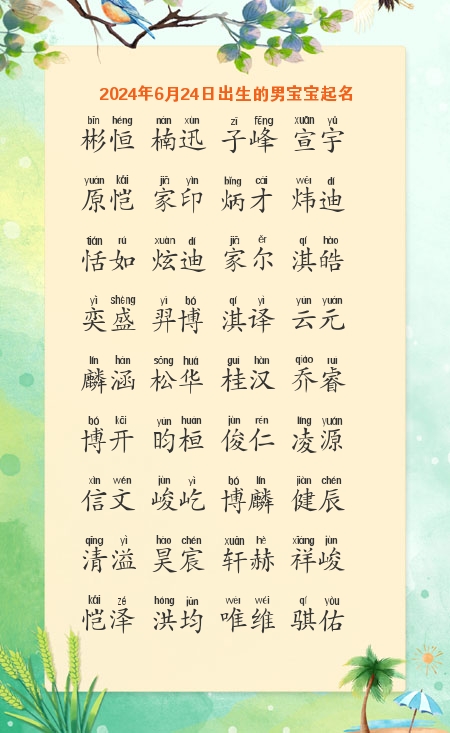 2024年6月24日出生的男宝宝起名
bīn héng nán xùn zǐ fēng xuān yǔ
彬恒 楠迅 子峰 宣宇
yuán kǎi jiā yìn bǐng cái wěi dí
原恺 家印 炳才 炜迪
tián rú xuàn dí jiā ěr qí hào
恬如 炫迪 家尔 淇皓
yì shèng yì bó qí yì yún yuán
奕盛 羿博 淇译 云元
lín hán sōng huá guì hàn qiáo ruì
麟涵 松华 桂汉 乔睿
bó kāi yún huán jùn rén líng yuán
博开 昀桓 俊仁 凌源
xìn wén jùn yì bó lín jiàn chén
信文 峻屹 博麟 健辰
qīng yì hào chén xuān hè xiáng jùn
清溢 昊宸 轩赫 祥峻
kǎi zé hóng jūn wéi wéi qí yòu
恺泽 洪均 唯维 骐佑